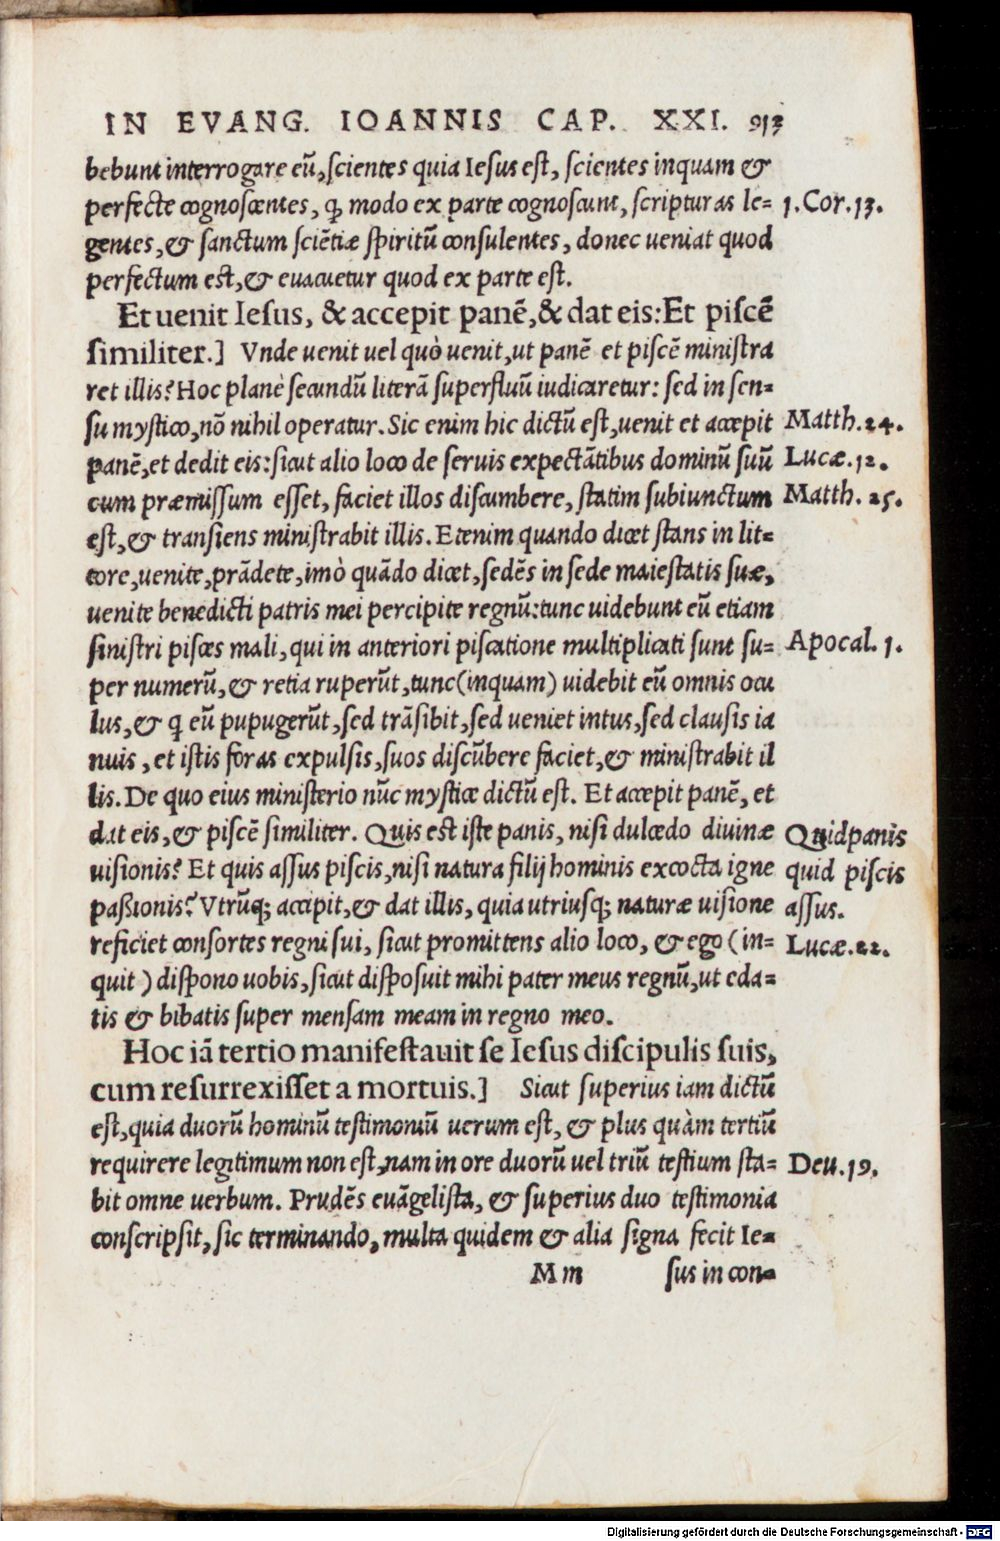 IN EVANG. IOANNIS CAP. XXI. 913
bebunt interrogare eū, scientes quia Iesus est, scientes inquam &
perfecte cognoscentes, q̃ modo ex parte cognoscunt, scripturas le= 1. Cor. 13.
gentes, & sanctum sciētiæ spiritū consulentes, donec ueniat quod
perfectum est, & euacuetur quod ex parte est.
Et uenit Iesus, & accepit panē, & dat eis: Et piscē
similiter.] Vnde uenit uel quò uenit, ut panē et piscē ministra
ret illis? Hoc planè secundū literā superfluū iudicaretur: sed in sen=
su mystico, nō nihil operatur. Sic enim hic dictū est, uenit et accepit Matth. 24.
panē, et dedit eis: sicut alio loco de seruis expectātibus dominū suū Lucæ. 12.
cum præmissum esset, faciet illos discumbere, statim subiunctum Matth. 25.
est, & transiens ministrabit illis. Etenim quando dicet stans in lit=
tore, uenite, prādete, imò quādo dicet, sedēs in sede maiestatis suæ,
uenite benedicti patris mei percipite regnū: tunc uidebunt eū etiam
sinistri pisces mali, qui in anteriori piscatione multiplicati sunt su= Apocal. 1.
per numerū, & retia ruperūt, tunc (inquam) uidebit eū omnis ocu
lus, & q eū pupugerūt, sed trāsibit, sed ueniet intus, sed clausis ia
nuis, et istis foras expulsis, suos discūbere faciet, & ministrabit il
lis. De quo eius ministerio nūc mysticæ dictū est. Et accepit panē, et
dat eis, & piscē similiter. Quis est iste panis, nisi dulcedo diuinæ Quid panis
uisionis? Et quis assus piscis, nisi natura filij hominis excocta igne quid piscis
passionis? Vtrūq; accipit, & dat illis, quia utriusq; naturæ uisione assus.
reficiet consortes regni sui, sicut promittens alio loco, & ego (in= Lucæ. 22.
quit) dispono uobis, sicut disposuit mihi pater meus regnū, ut eda=
tis & bibatis super mensam meam in regno meo.
Hoc iā tertio manifestauit se Iesus discipulis suis,
cum resurrexisset a mortuis.] Sicut superius iam dictū
est, quia duorū hominū testimoniū uerum est, & plus quàm tertiū
requirere legitimum non est, nam in ore duorū uel triū testium sta= Deu. 19.
bit omne uerbum. Prudēs euāgelista, & superius duo testimonia
conscripsit, sic terminando, multa quidem & alia signa fecit Ie=
M m sus in con=
Digitalisierung gefördert durch die Deutsche Forschungsgemeinschaft - DFG